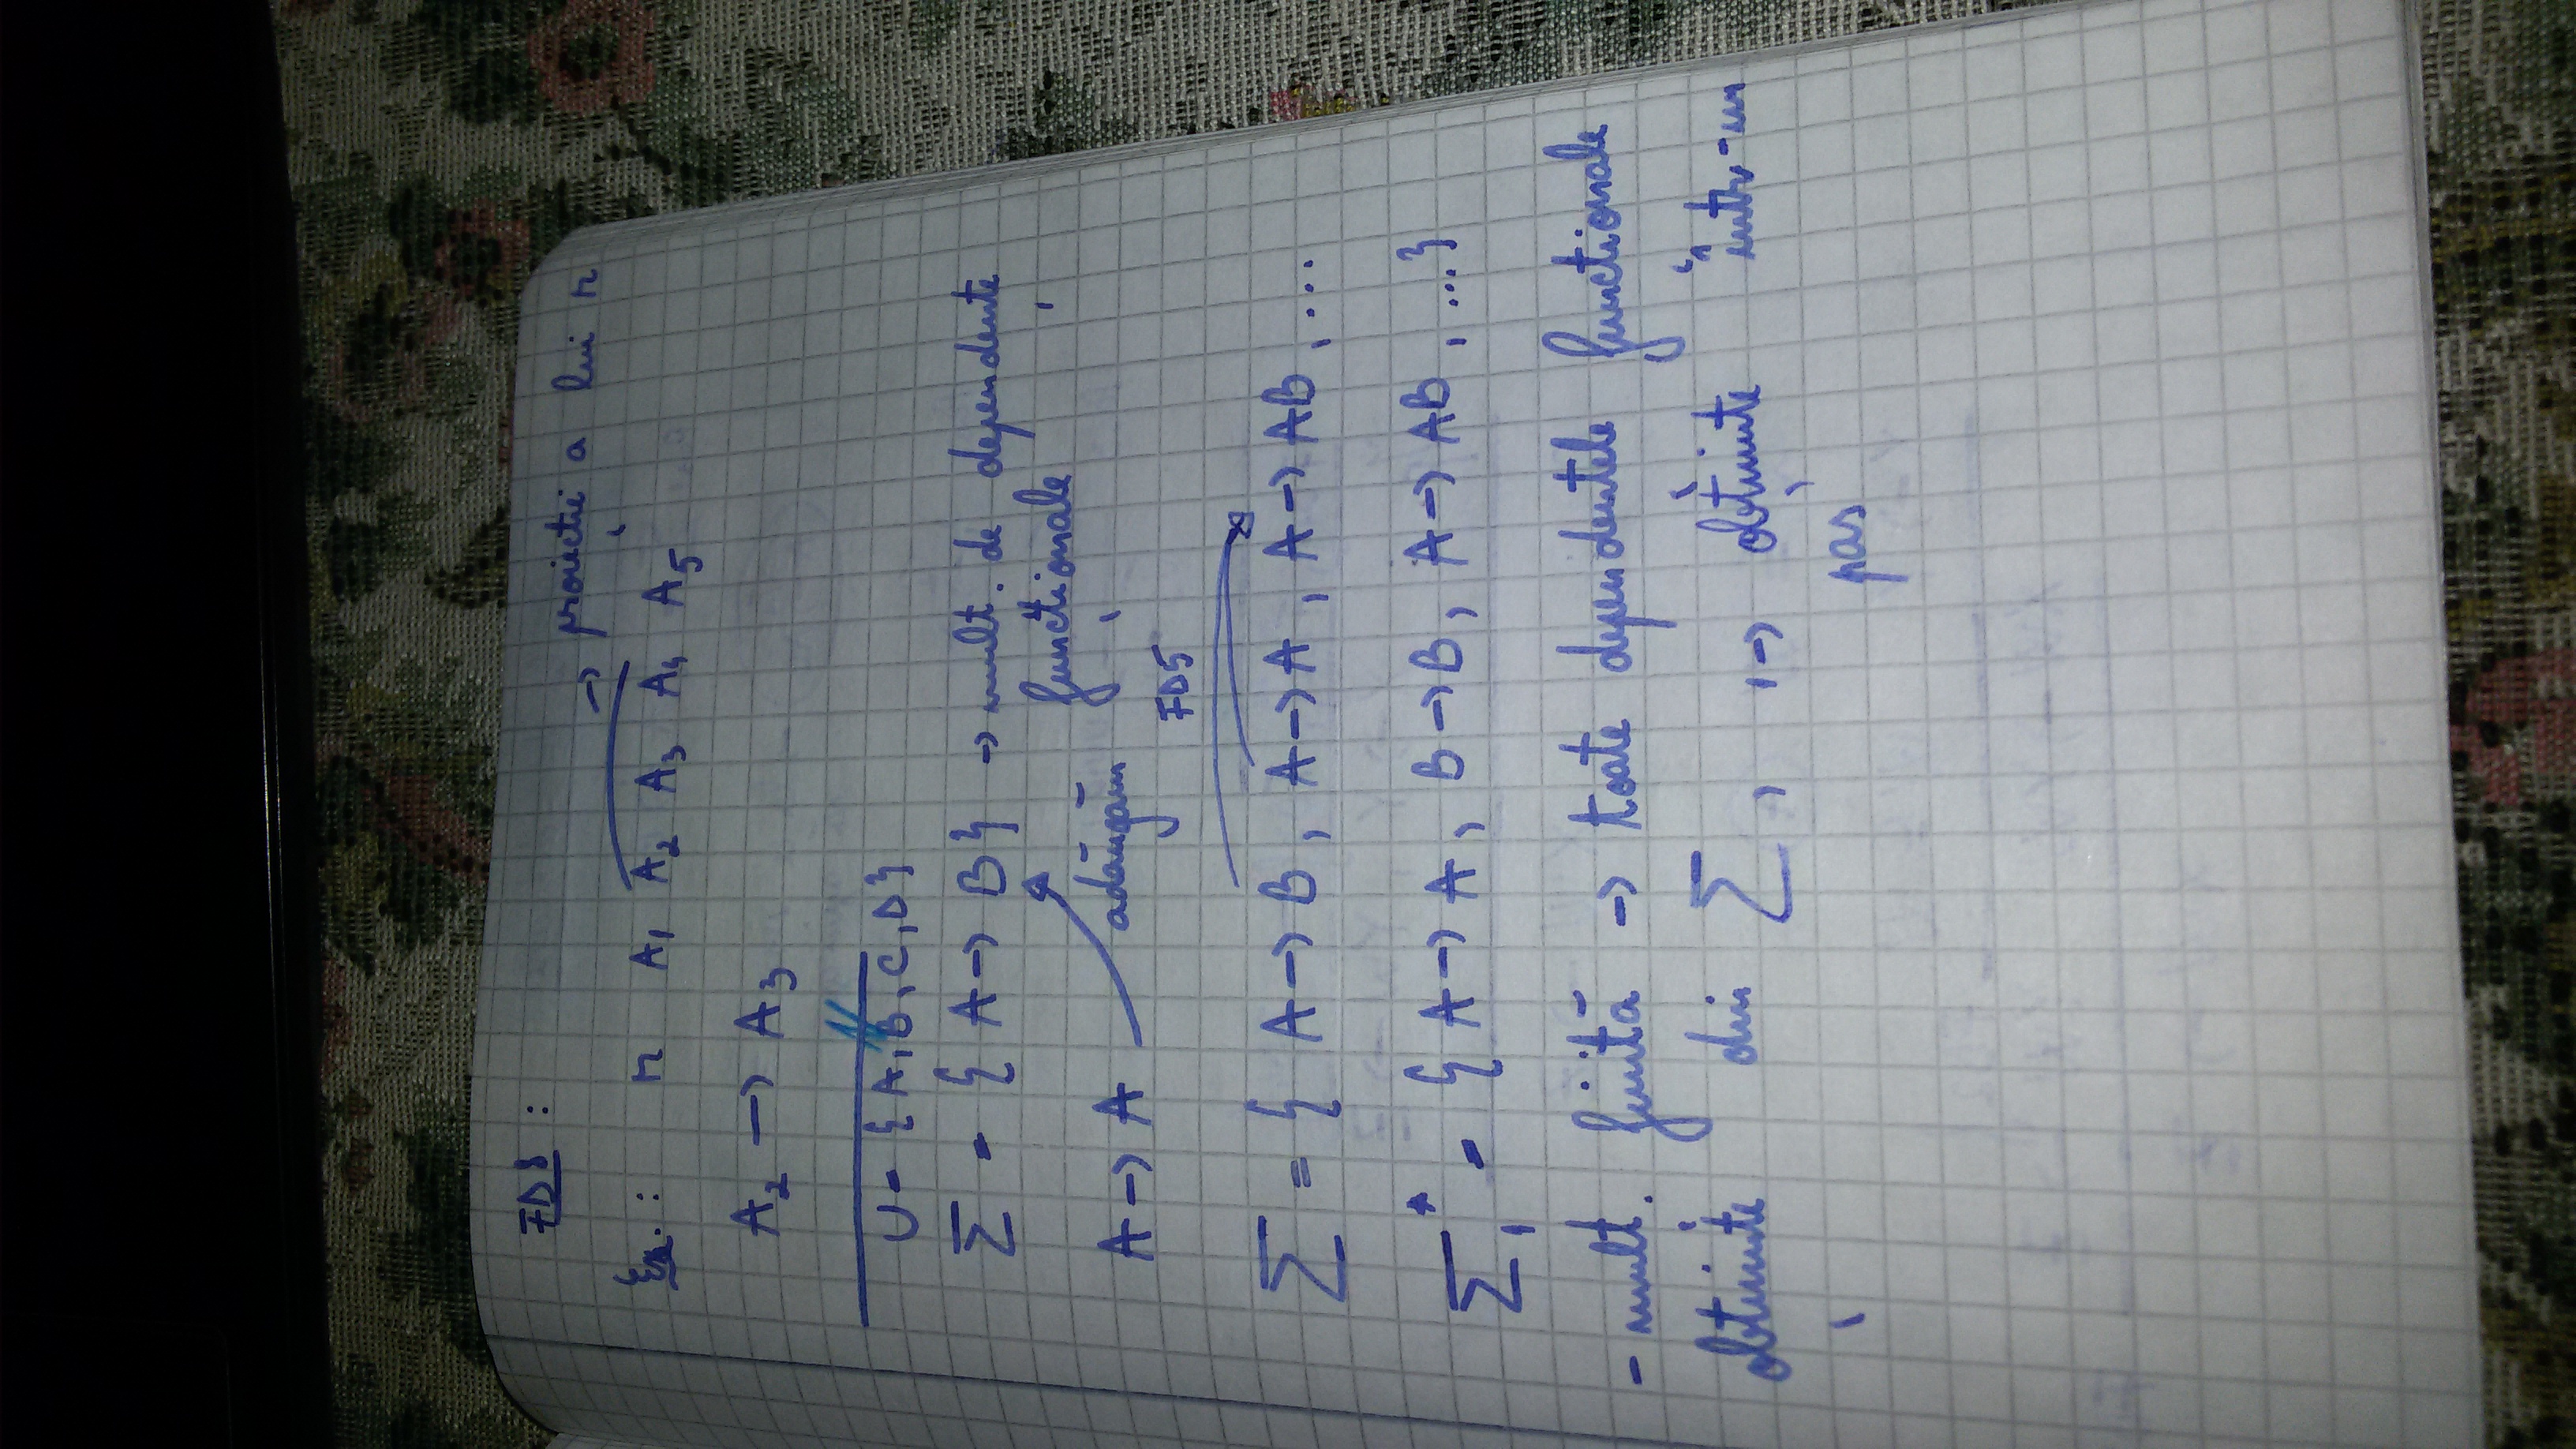 FD8 :
→ proiecție a lui r
Ex. : r A₁ A₂ A₃ A₄ A₅
A₂ → A₃
U = {A, B, C, D}
Σ = { A → B} → mult. de dependențe
funcționale
A → A adăugăm
FD5
Σ = { A → B, A → A, A → AB, ...
Σ₁* = { A → A, B → B, A → AB, ...}
- mult. finită → toate dependențele funcționale
obținute din Σ₁ → obținute într-un
pas